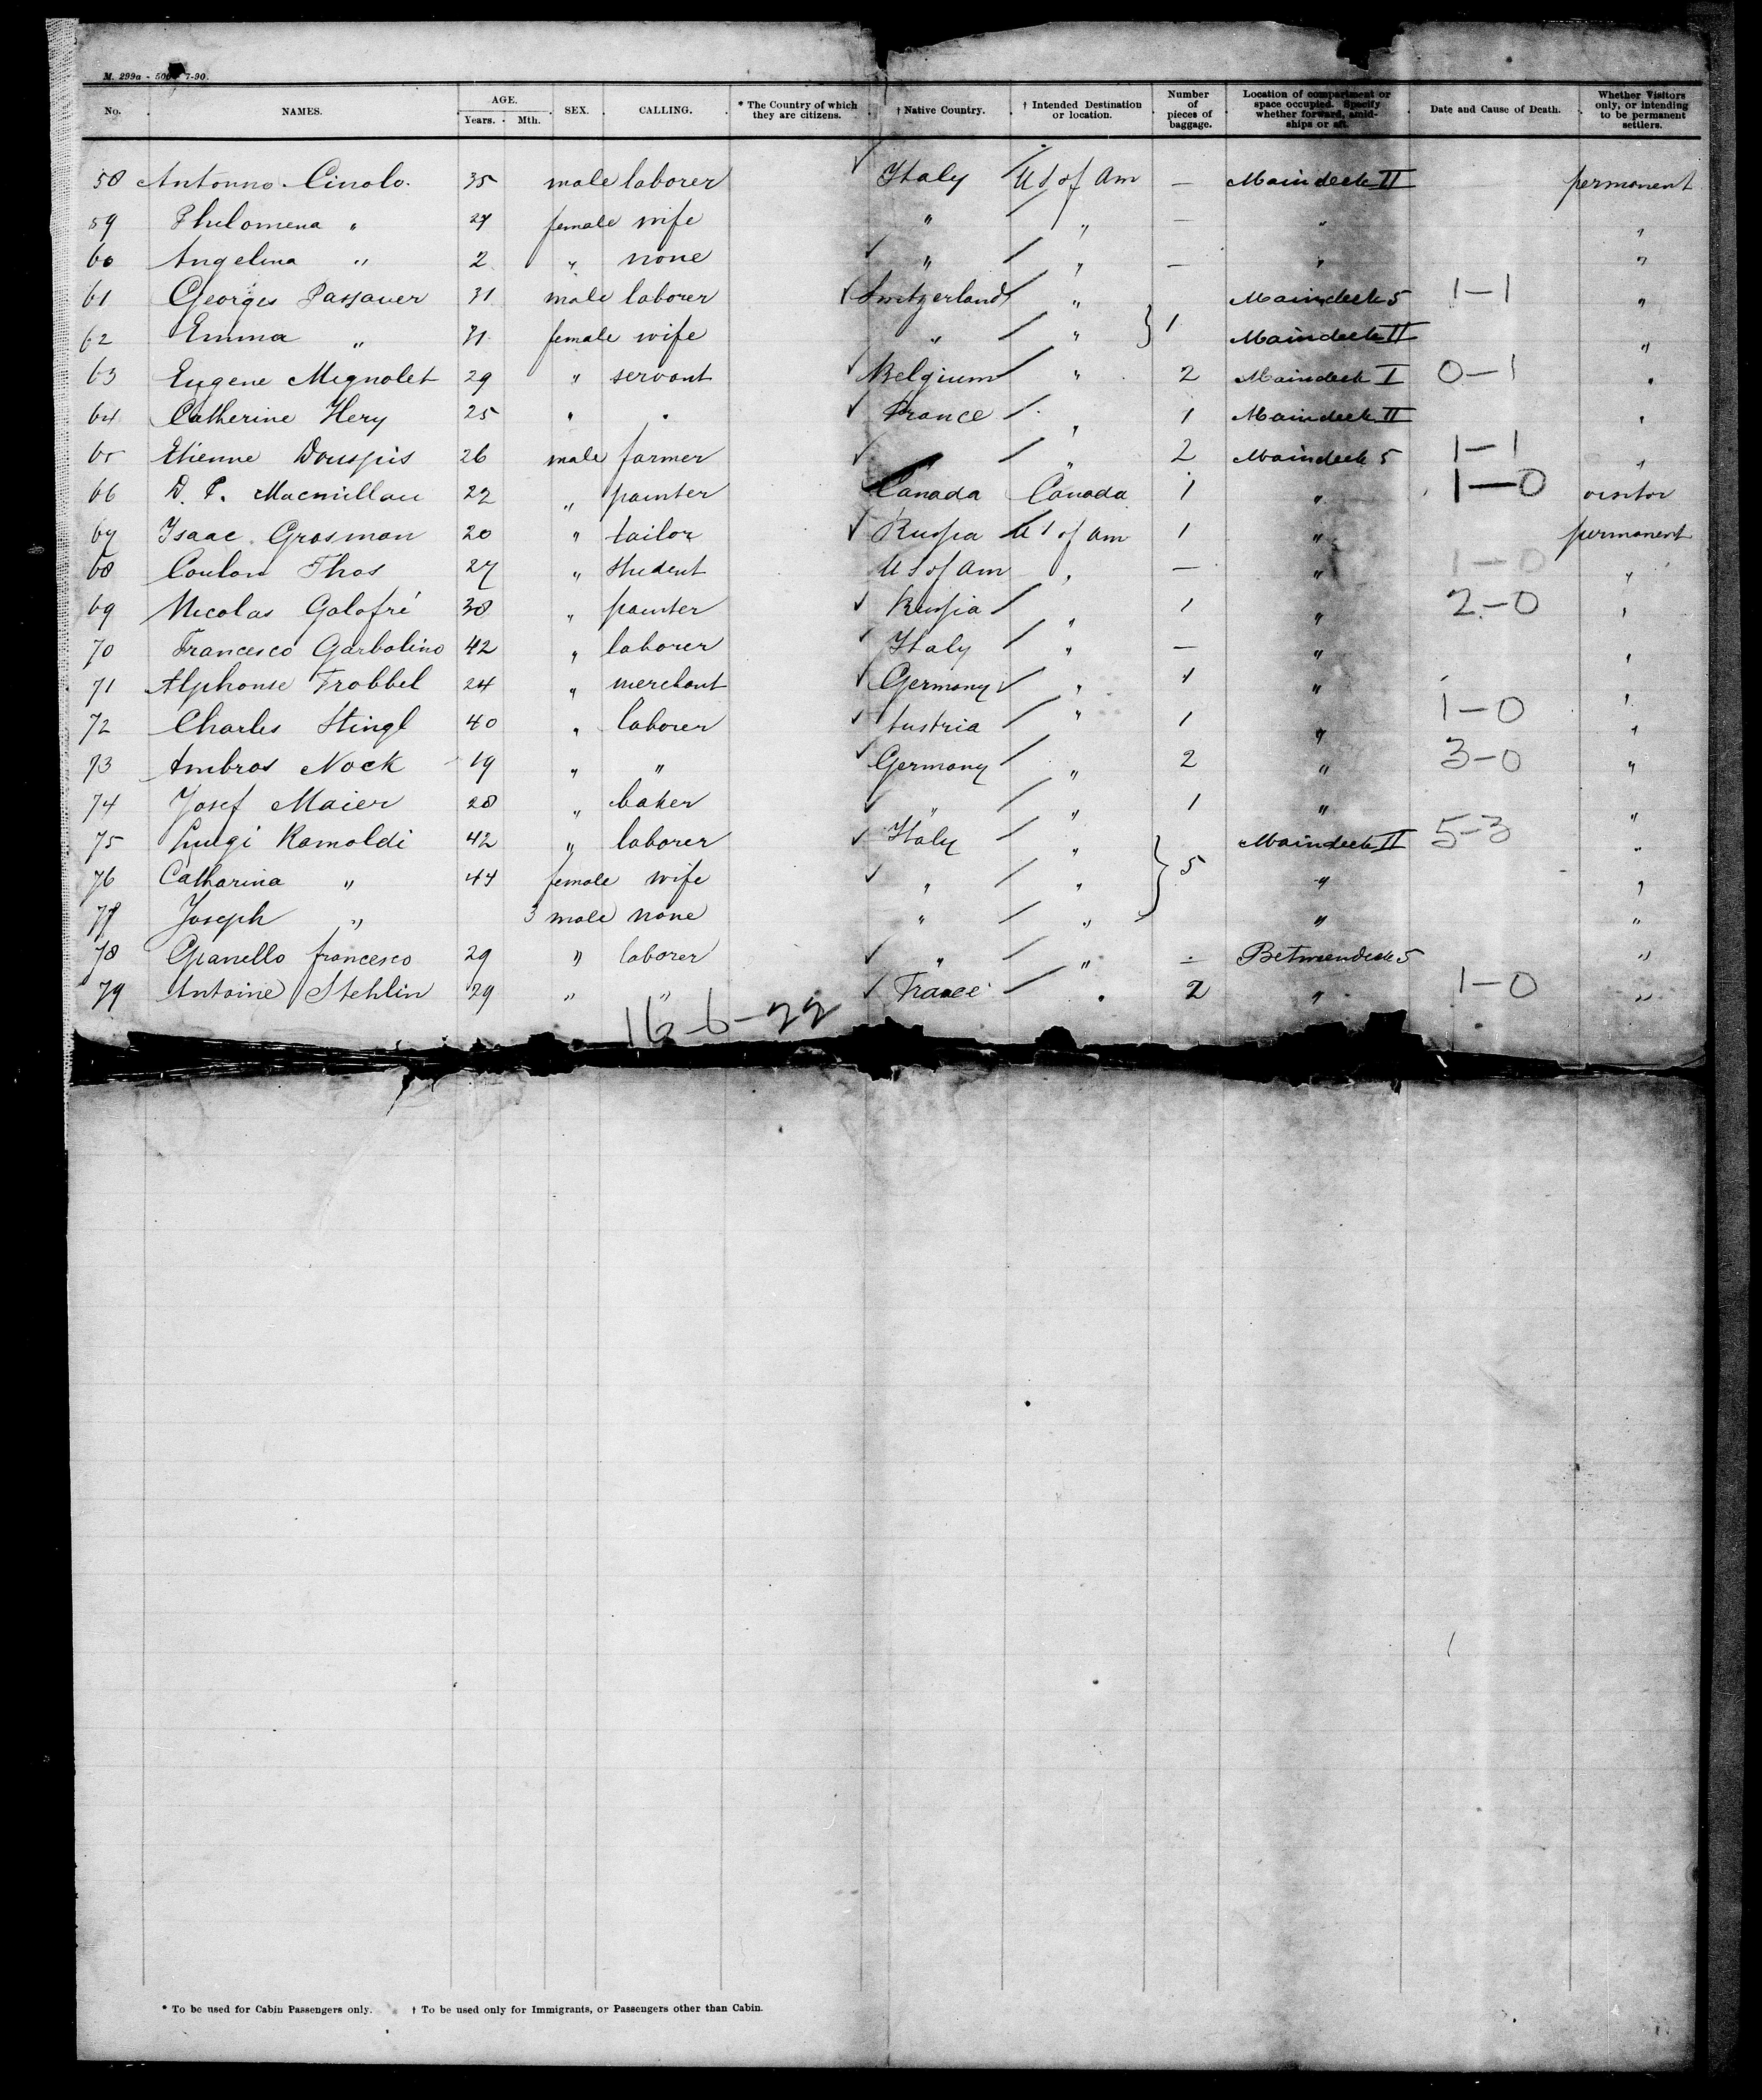 M. 299a - 500 - 7-90.
No. NAMES. AGE. Years. Mth. SEX. CALLING. * The Country of which they are citizens. † Native Country. † Intended Destination or location. Number of pieces of baggage. Location of compartment or space occupied. Specify whether forward, amidships or aft. Date and Cause of Death. Whether Visitors only, or intending to be permanent settlers.
58 Antonno Cinolo. 35 male laborer Italy U S of Am — Maindeck II permanent
59 Philomena " 27 female wife " " — " "
60 Angelina " 2 " none " " — " "
61 Georges Passauer 31 male laborer Switzerland " Maindeck 5 1-1 "
62 Emma " 31 female wife " " } 1 Maindeck II "
63 Eugene Mignolet 29 " servant Belgium " 2 Maindeck I 0-1 "
64 Catherine Hery 25 " " France " 1 Maindeck II "
65 Etienne Douspis 26 male farmer " 2 Maindeck 5 1-1 "
66 D. P. Macmillan 22 " painter Canada Canada 1 " 1-0 visitor
67 Isaac Grosman 20 " tailor Russia U S of Am 1 " permanent
68 Coulon Thos 27 " student U S of Am " — " 1-0 "
69 Nicolas Golofré 38 " painter Russia " 1 " 2-0 "
70 Francesco Garbolino 42 " laborer Italy " — " "
71 Alphonse Trobbel 24 " merchant Germany " 1 " "
72 Charles Stingl 40 " laborer Austria " 1 " 1-0 "
73 Ambros Nock 19 " " Germany " 2 " 3-0 "
74 Josef Maier 28 " baker " " 1 " "
75 Luigi Ramoldi 42 " laborer Italy " Maindeck II 5-3 "
76 Catharina " 44 female wife " " } 5 " "
77 Joseph " 3 male none " " " "
78 Gianello francesco 29 " laborer " " — Betweendeck 5 "
79 Antoine Stehlin 29 " " France " 2 " 1-0 "
16-6-22
* To be used for Cabin Passengers only. † To be used only for Immigrants, or Passengers other than Cabin.